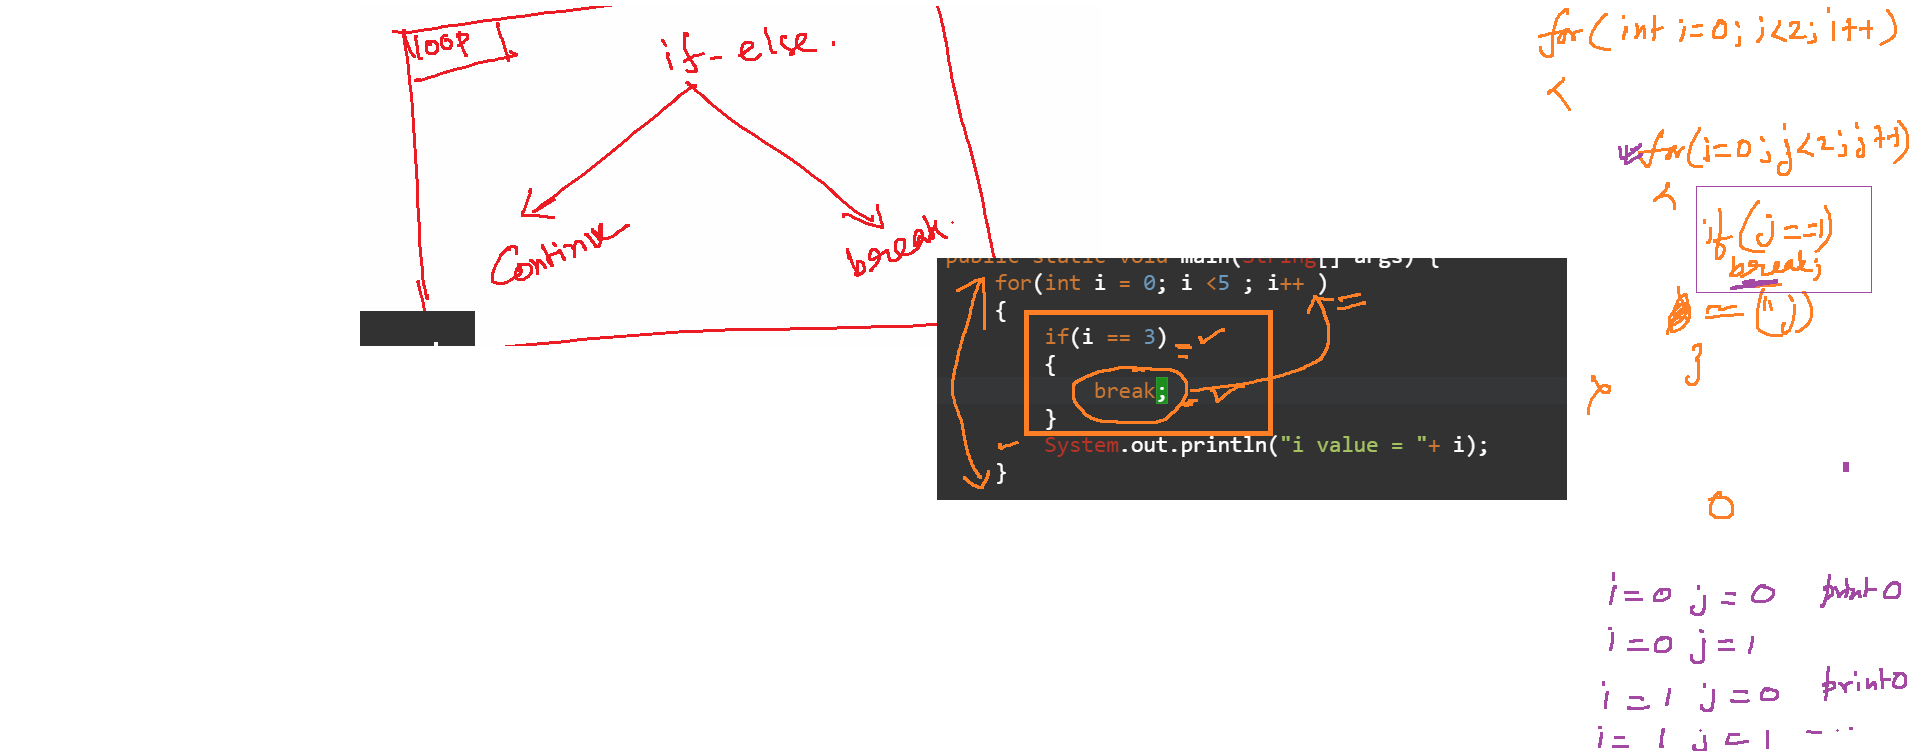 loop
if-else.
Continue
break.
public static void main(String[] args) {
for(int i = 0; i <5 ; i++ )
{
if(i == 3)
{
break;
}
System.out.println("i value = "+ i);
}
for(int i=0; i<2; i++)
{
for(j=0; j<2; j++)
{
if(j==1)
break;
}
}
0
i=0 j=0 print 0
i=0 j=1
i=1 j=0 print 0
i=1 j=1 ---